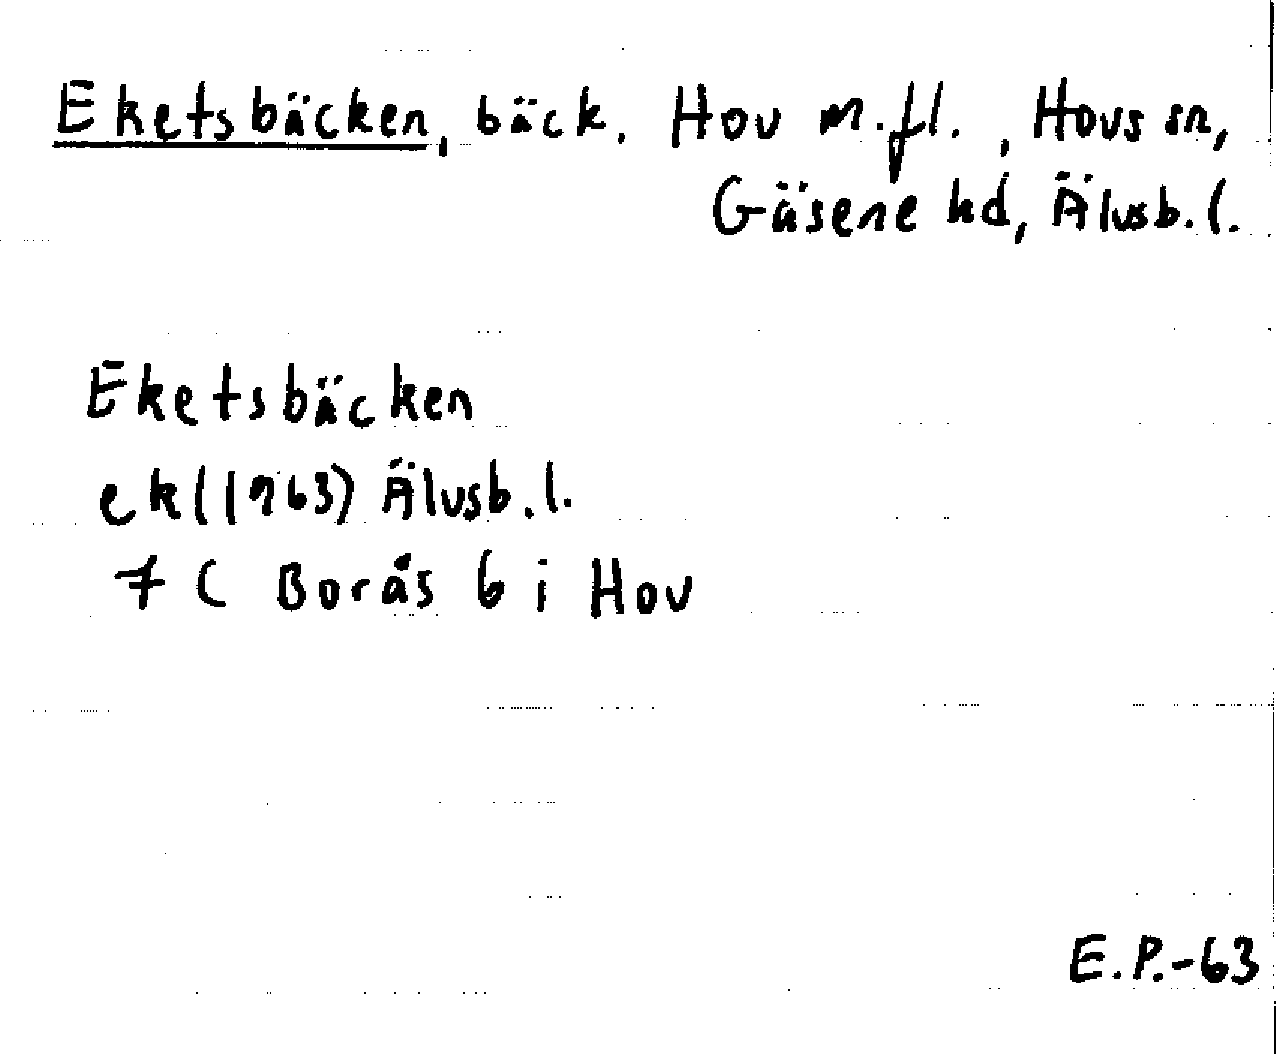 Eketsbäcken, bäck. Hov m.fl., Hovs sn,
Gäsene hd, Älvsb.l.
Eketsbäcken
ek (1963) Älvsb.l.
7 C Borås 6 i Hov
E.P.-63